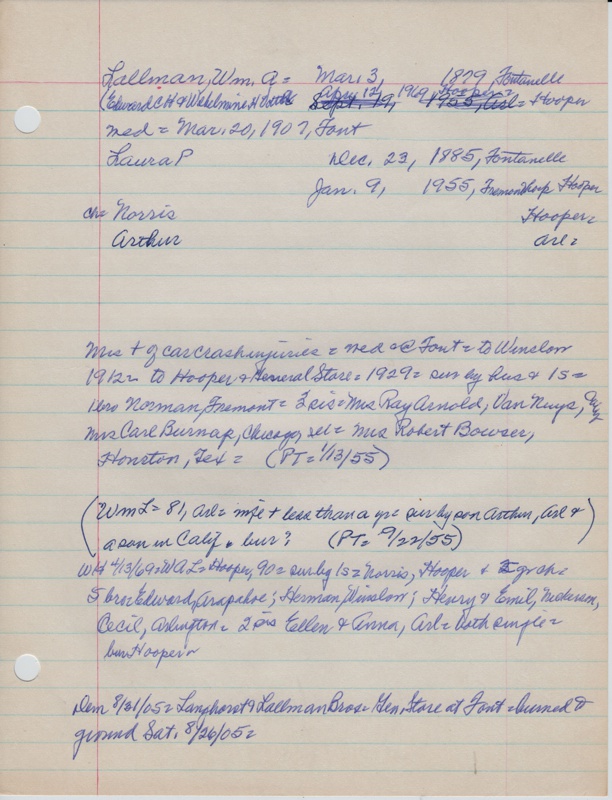 Lallman, Wm. A = Mar. 3, 1879, Fontanelle
(Edward C H & Wilhelmine H Apr. 12, 1969 Hooper =
Sept. 19, 1955, Arl = Hooper
med = Mar. 20, 1907, Font
Laura P Dec. 23, 1885, Fontanelle
Jan. 9, 1955, Fremont Hosp Hooper
ch = Norris Hooper =
Arthur Arl =
Mrs + of car crash injuries = med = @ Font = to Winslow
1912 = to Hooper & General Store = 1929 = sur by hus & 1 s =
1 bro Norman, Fremont = 3 sis = Mrs Ray Arnold, Van Nuys,
Mrs Carl Burnap, Chicago, Mrs Robert Bowser,
Houston, Tex = (PT = 1/13/55)
(Wm L = 81, Arl = wife + less than a yr = sur by son Arthur, Arl &
a son in Calif & bur? (PT = 9/22/55)
4/13/69 = WA L = Hooper, 90 = sur by 1 s = Norris, Hooper & gr ch =
5 bros Edward, Arapahoe; Herman, Winslow; Henry & Emil, Nickerson,
Cecil, Arlington = 2 sis Ellen & Anna, Arl = both single =
bur Hooper =
Dem 8/31/05 = Langhorst & Lallman Bros = Gen. Store at Font = burned to
ground Sat. 8/26/05 =